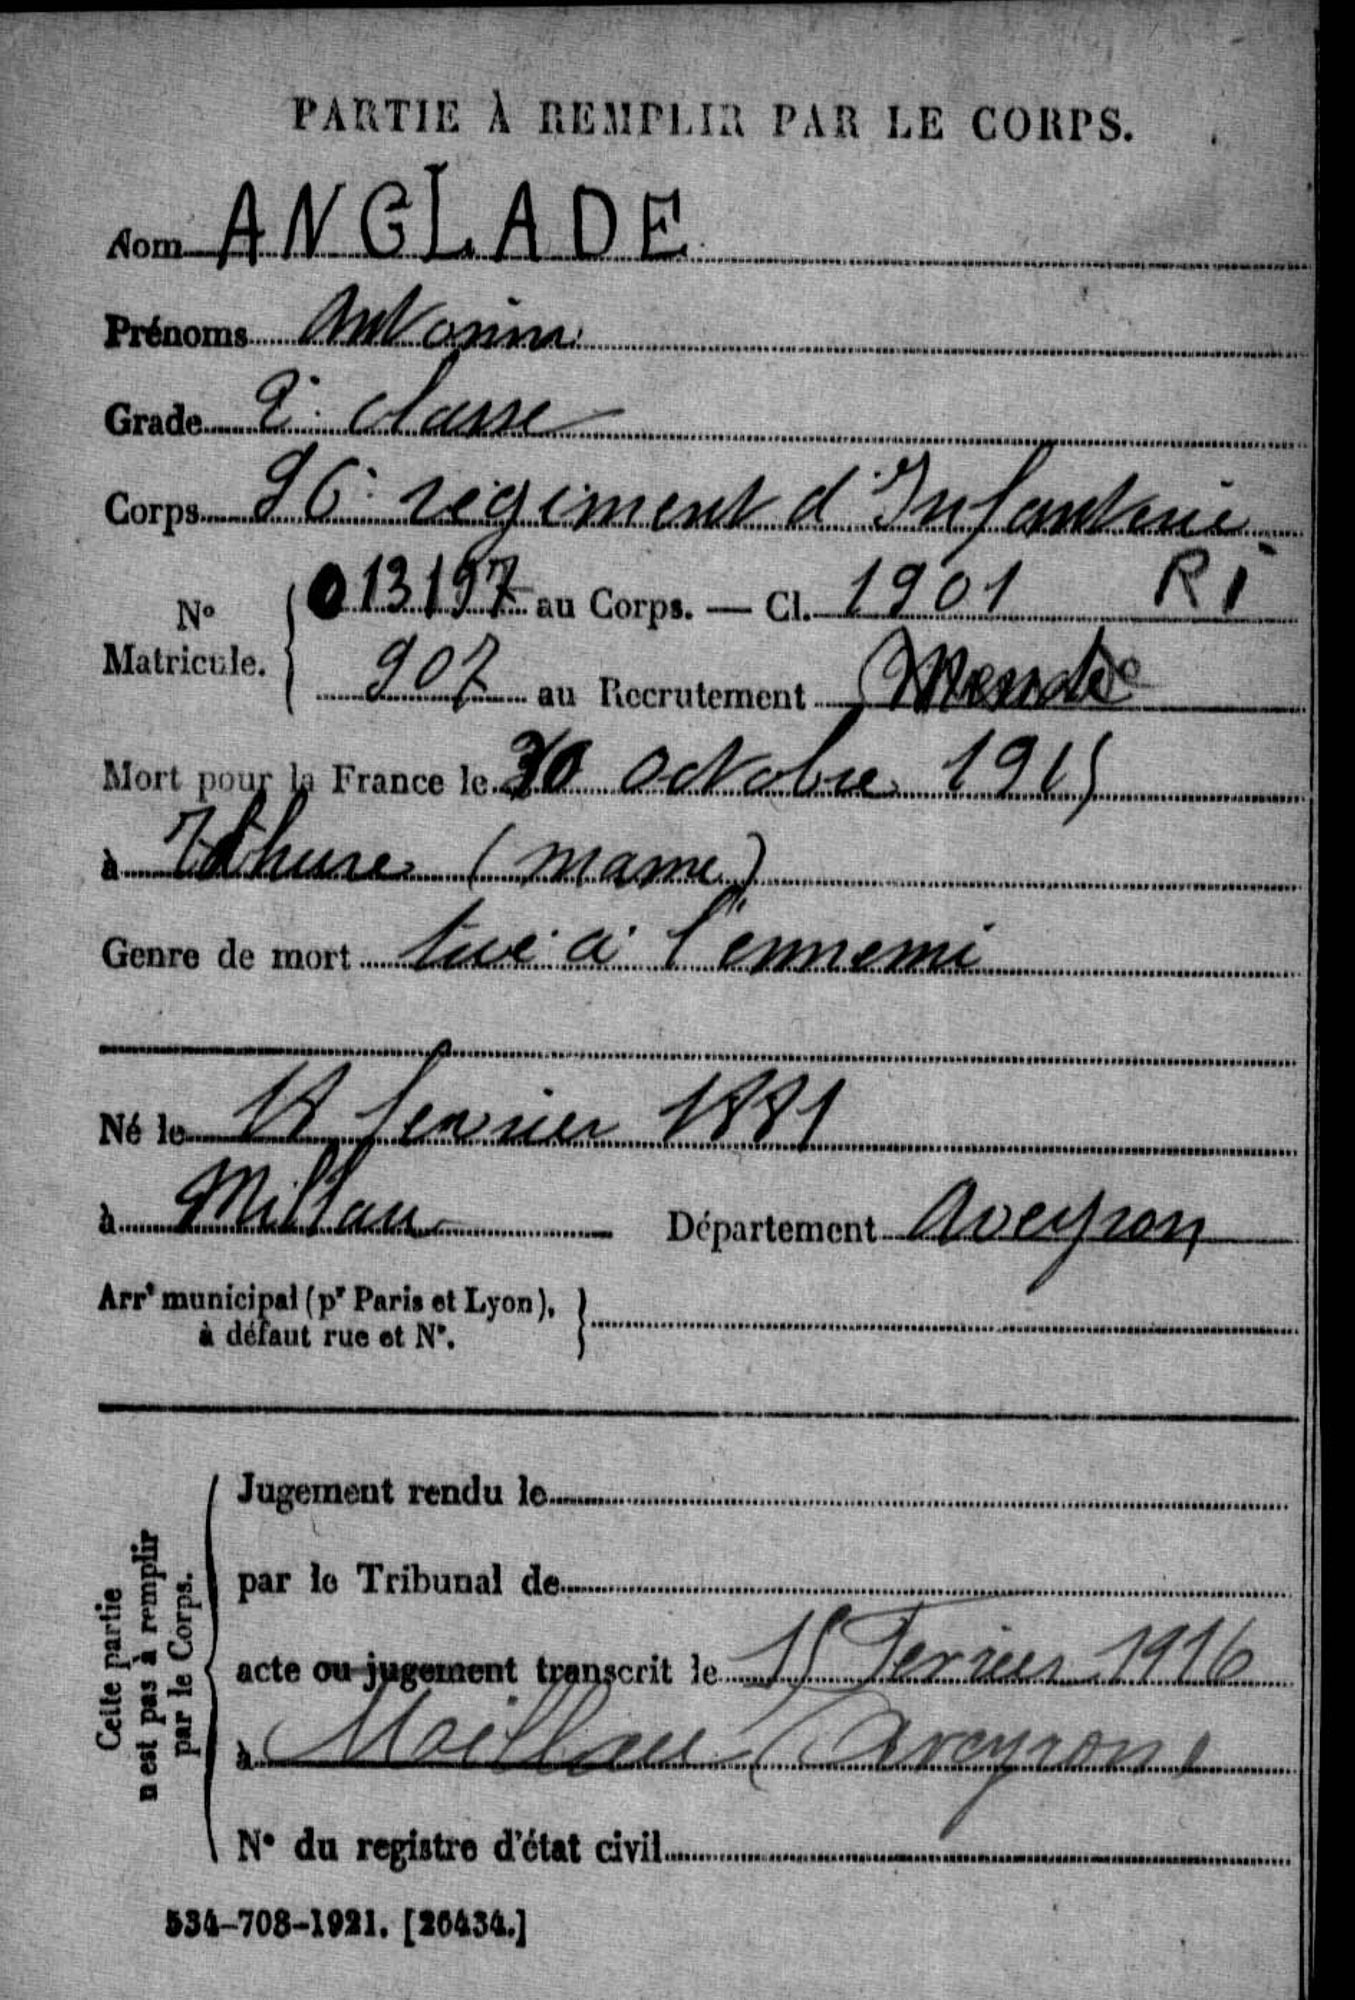 PARTIE À REMPLIR PAR LE CORPS.
Nom ANGLADE
Prénoms Antonin
Grade 2e classe
Corps 96e régiment d'Infanterie
No Matricule. { 013197 au Corps. — Cl. 1901 RI
907 au Recrutement Mende
Mort pour la France le 30 octobre 1915
à Tahure (Marne)
Genre de mort tué à l'ennemi
Né le 18 février 1881
à Millau Département Aveyron
Arrt municipal (pr Paris et Lyon), à défaut rue et N°. }
Cette partie n'est pas à remplir par le Corps.
Jugement rendu le
par le Tribunal de
acte ou jugement transcrit le 15 Fevrier 1916
à Meillau (Aveyron)
N° du registre d'état civil
534-708-1921. [26434.]